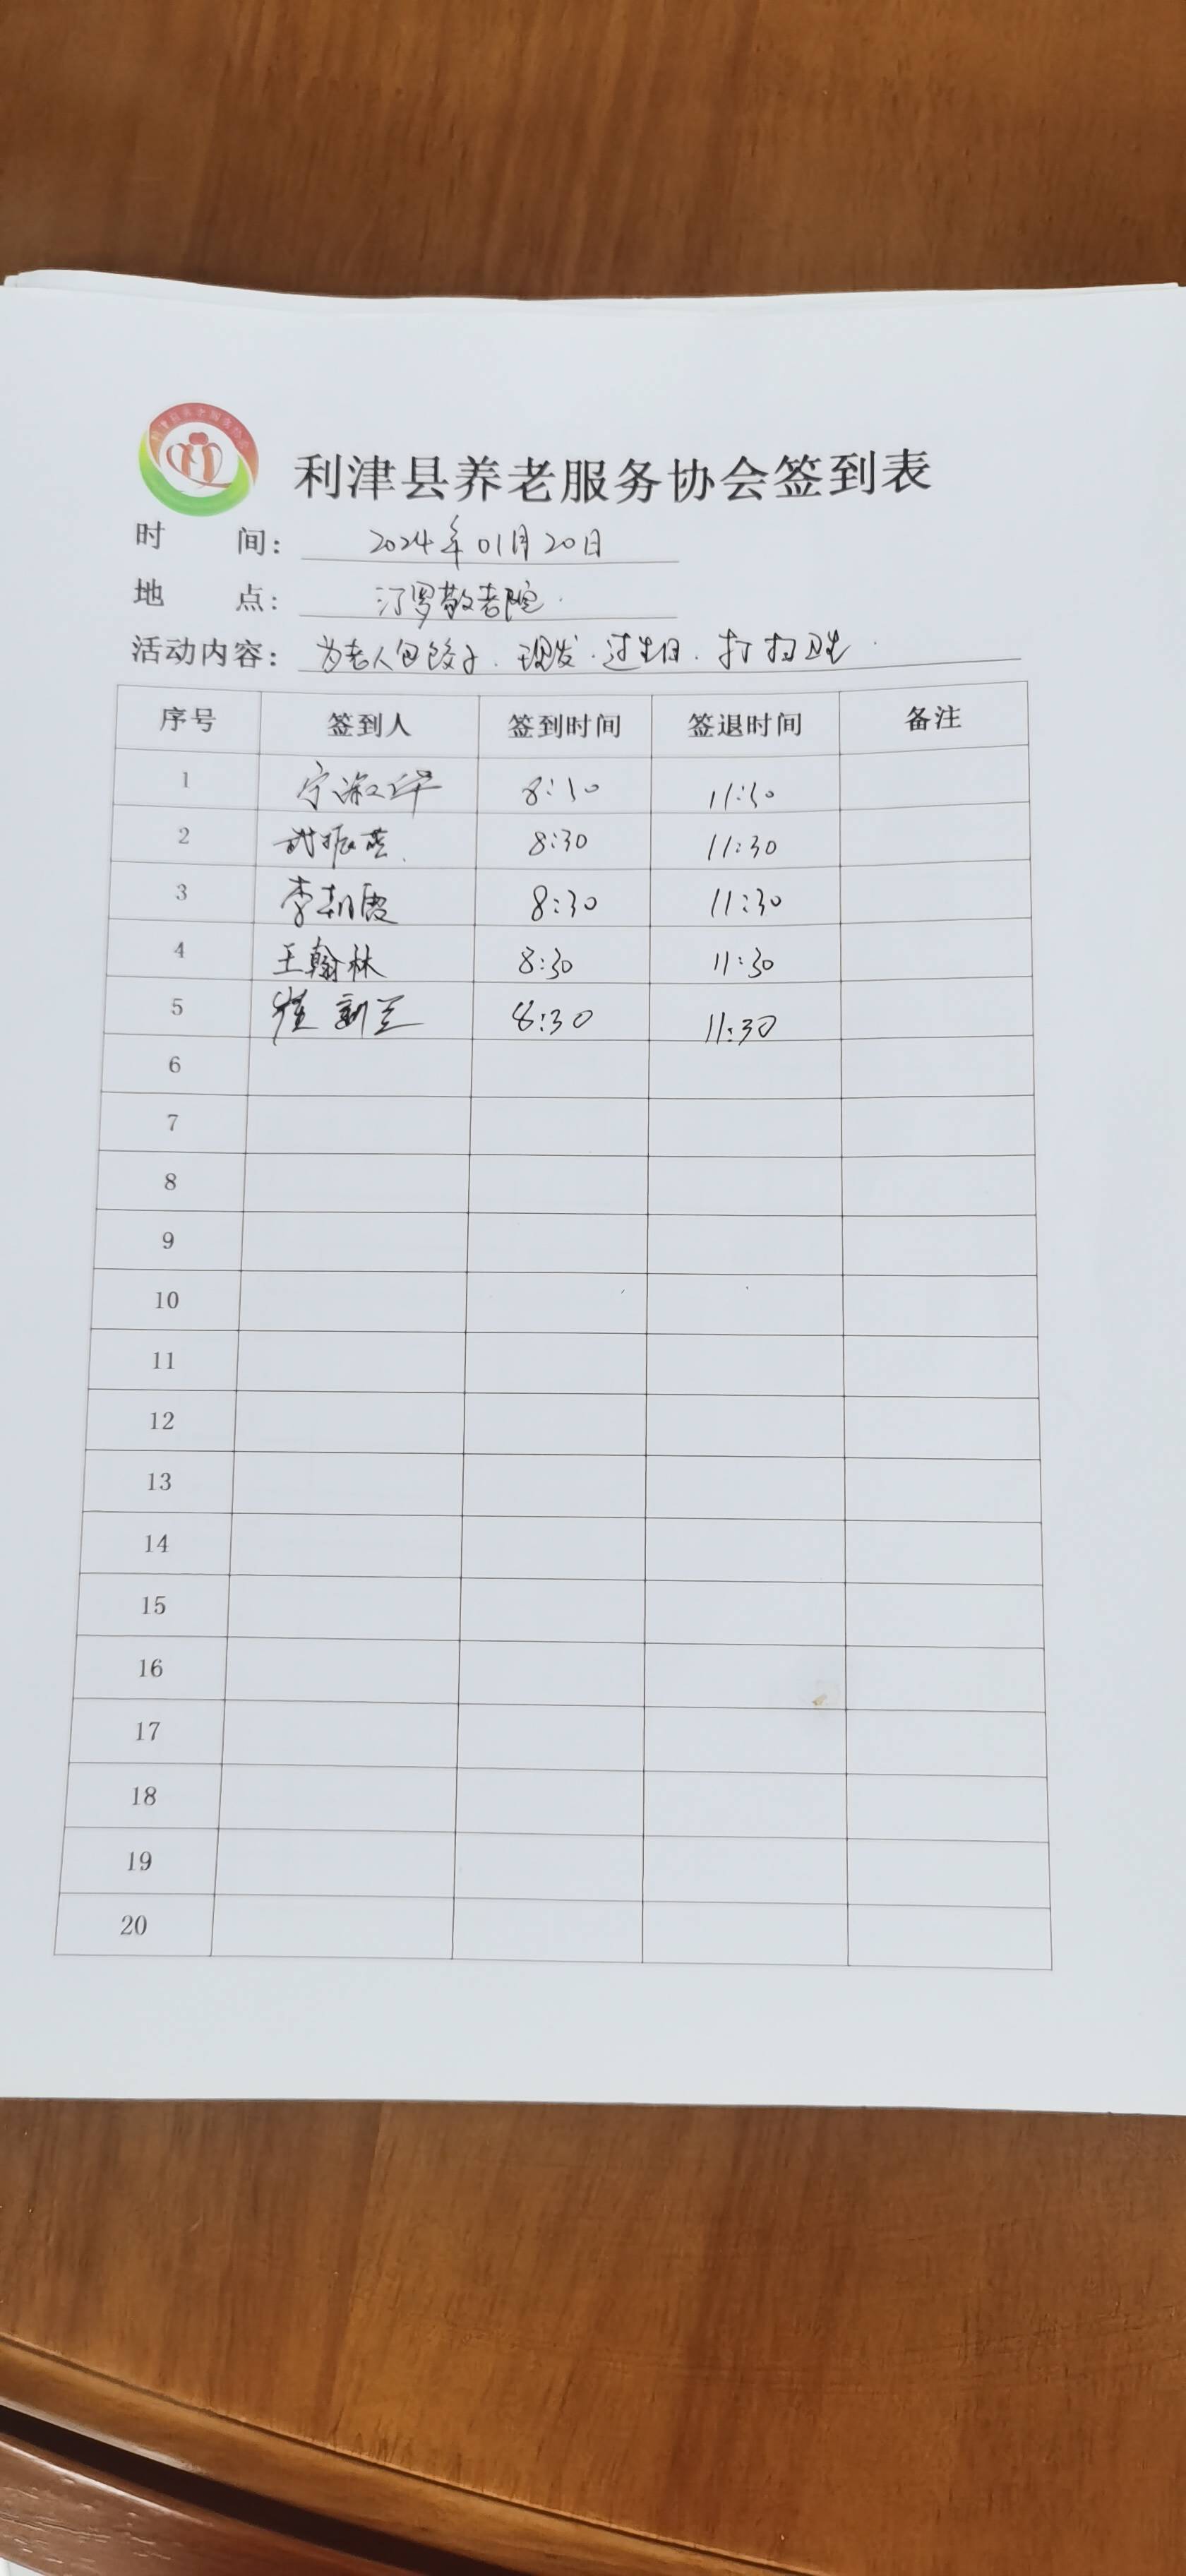 利津县养老服务协会
利津县养老服务协会签到表
时 间: 2024年01月20日
地 点: 汀罗敬老院.
活动内容: 为老人包饺子. 理发. 过生日. 打扫卫生.
序号 签到人 签到时间 签退时间 备注
1 宁淑华 8:30 11:30
2 8:30 11:30
3 李朝霞 8:30 11:30
4 王翰林 8:30 11:30
5 崔新兰 8:30 11:30
6
7
8
9
10
11
12
13
14
15
16
17
18
19
20